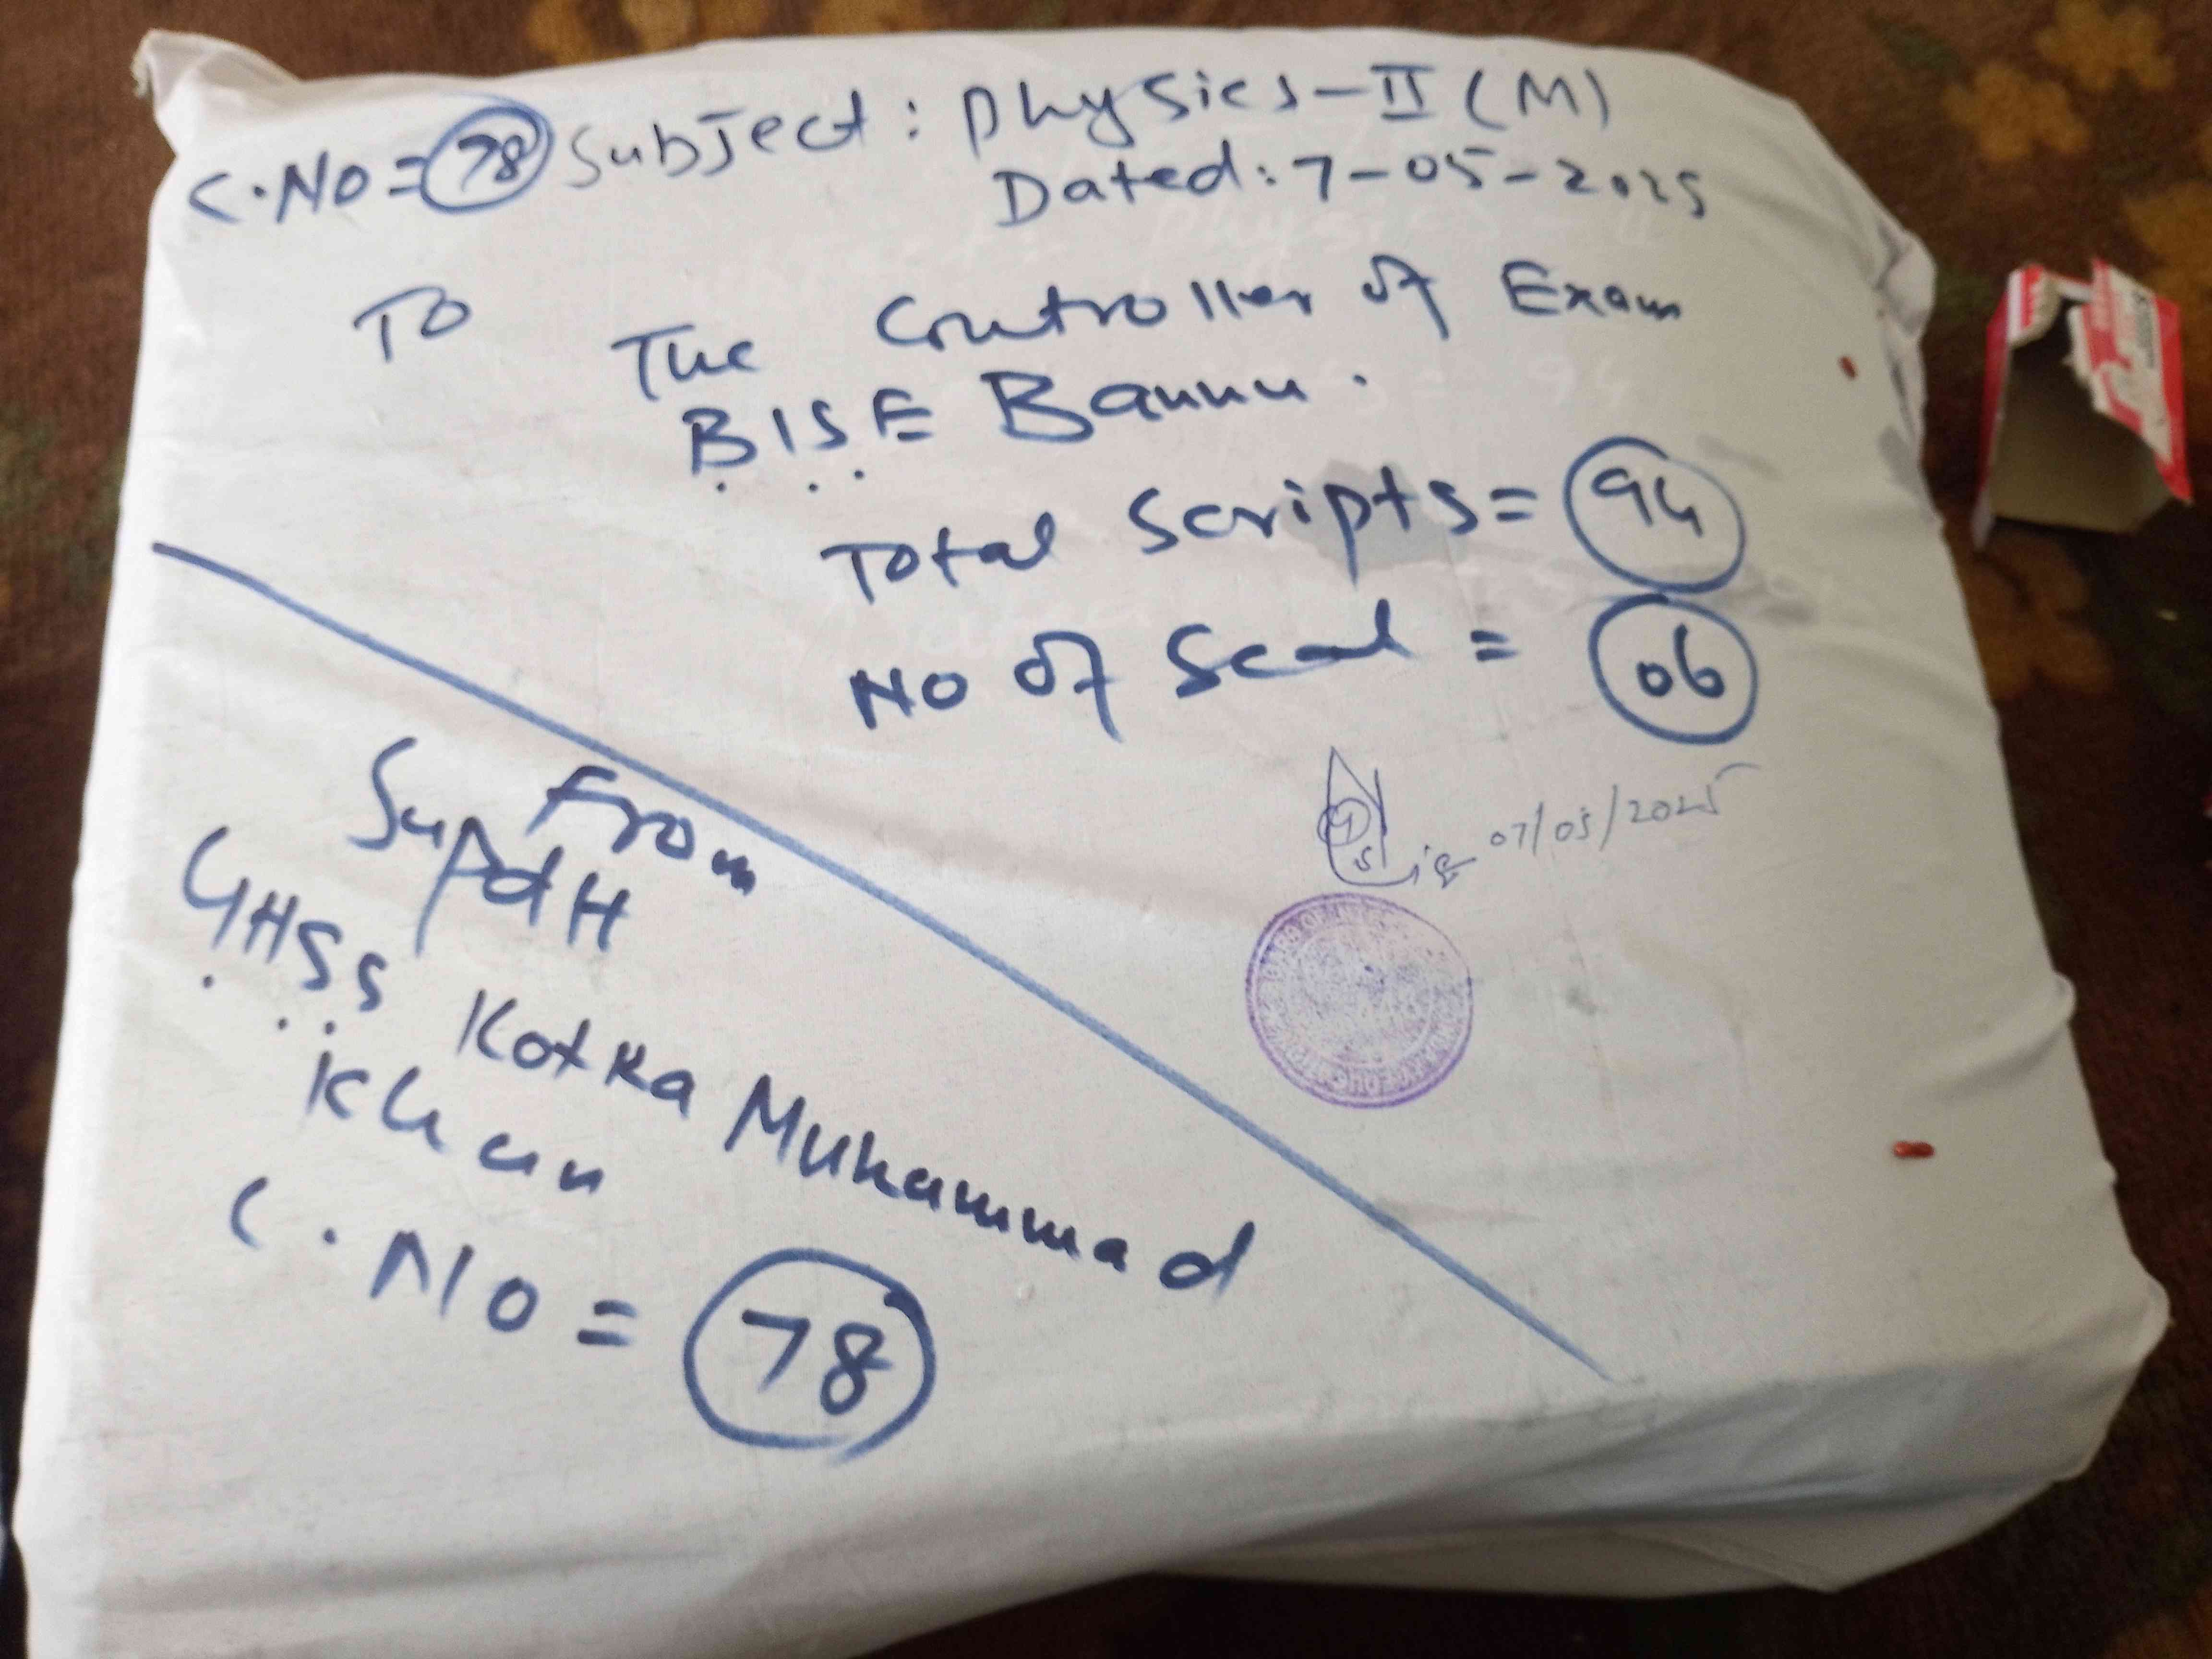 C.No = 78 Subject: Physics-II (M)
Dated: 7-05-2025
To
The Controller of Exam
B.I.S.E Bannu.
Total Scripts = 94
No of Seal = 06
07/05/2025
From
Supdtt
G.H.S.S Kotka Muhammad
Khan
C.No = 78